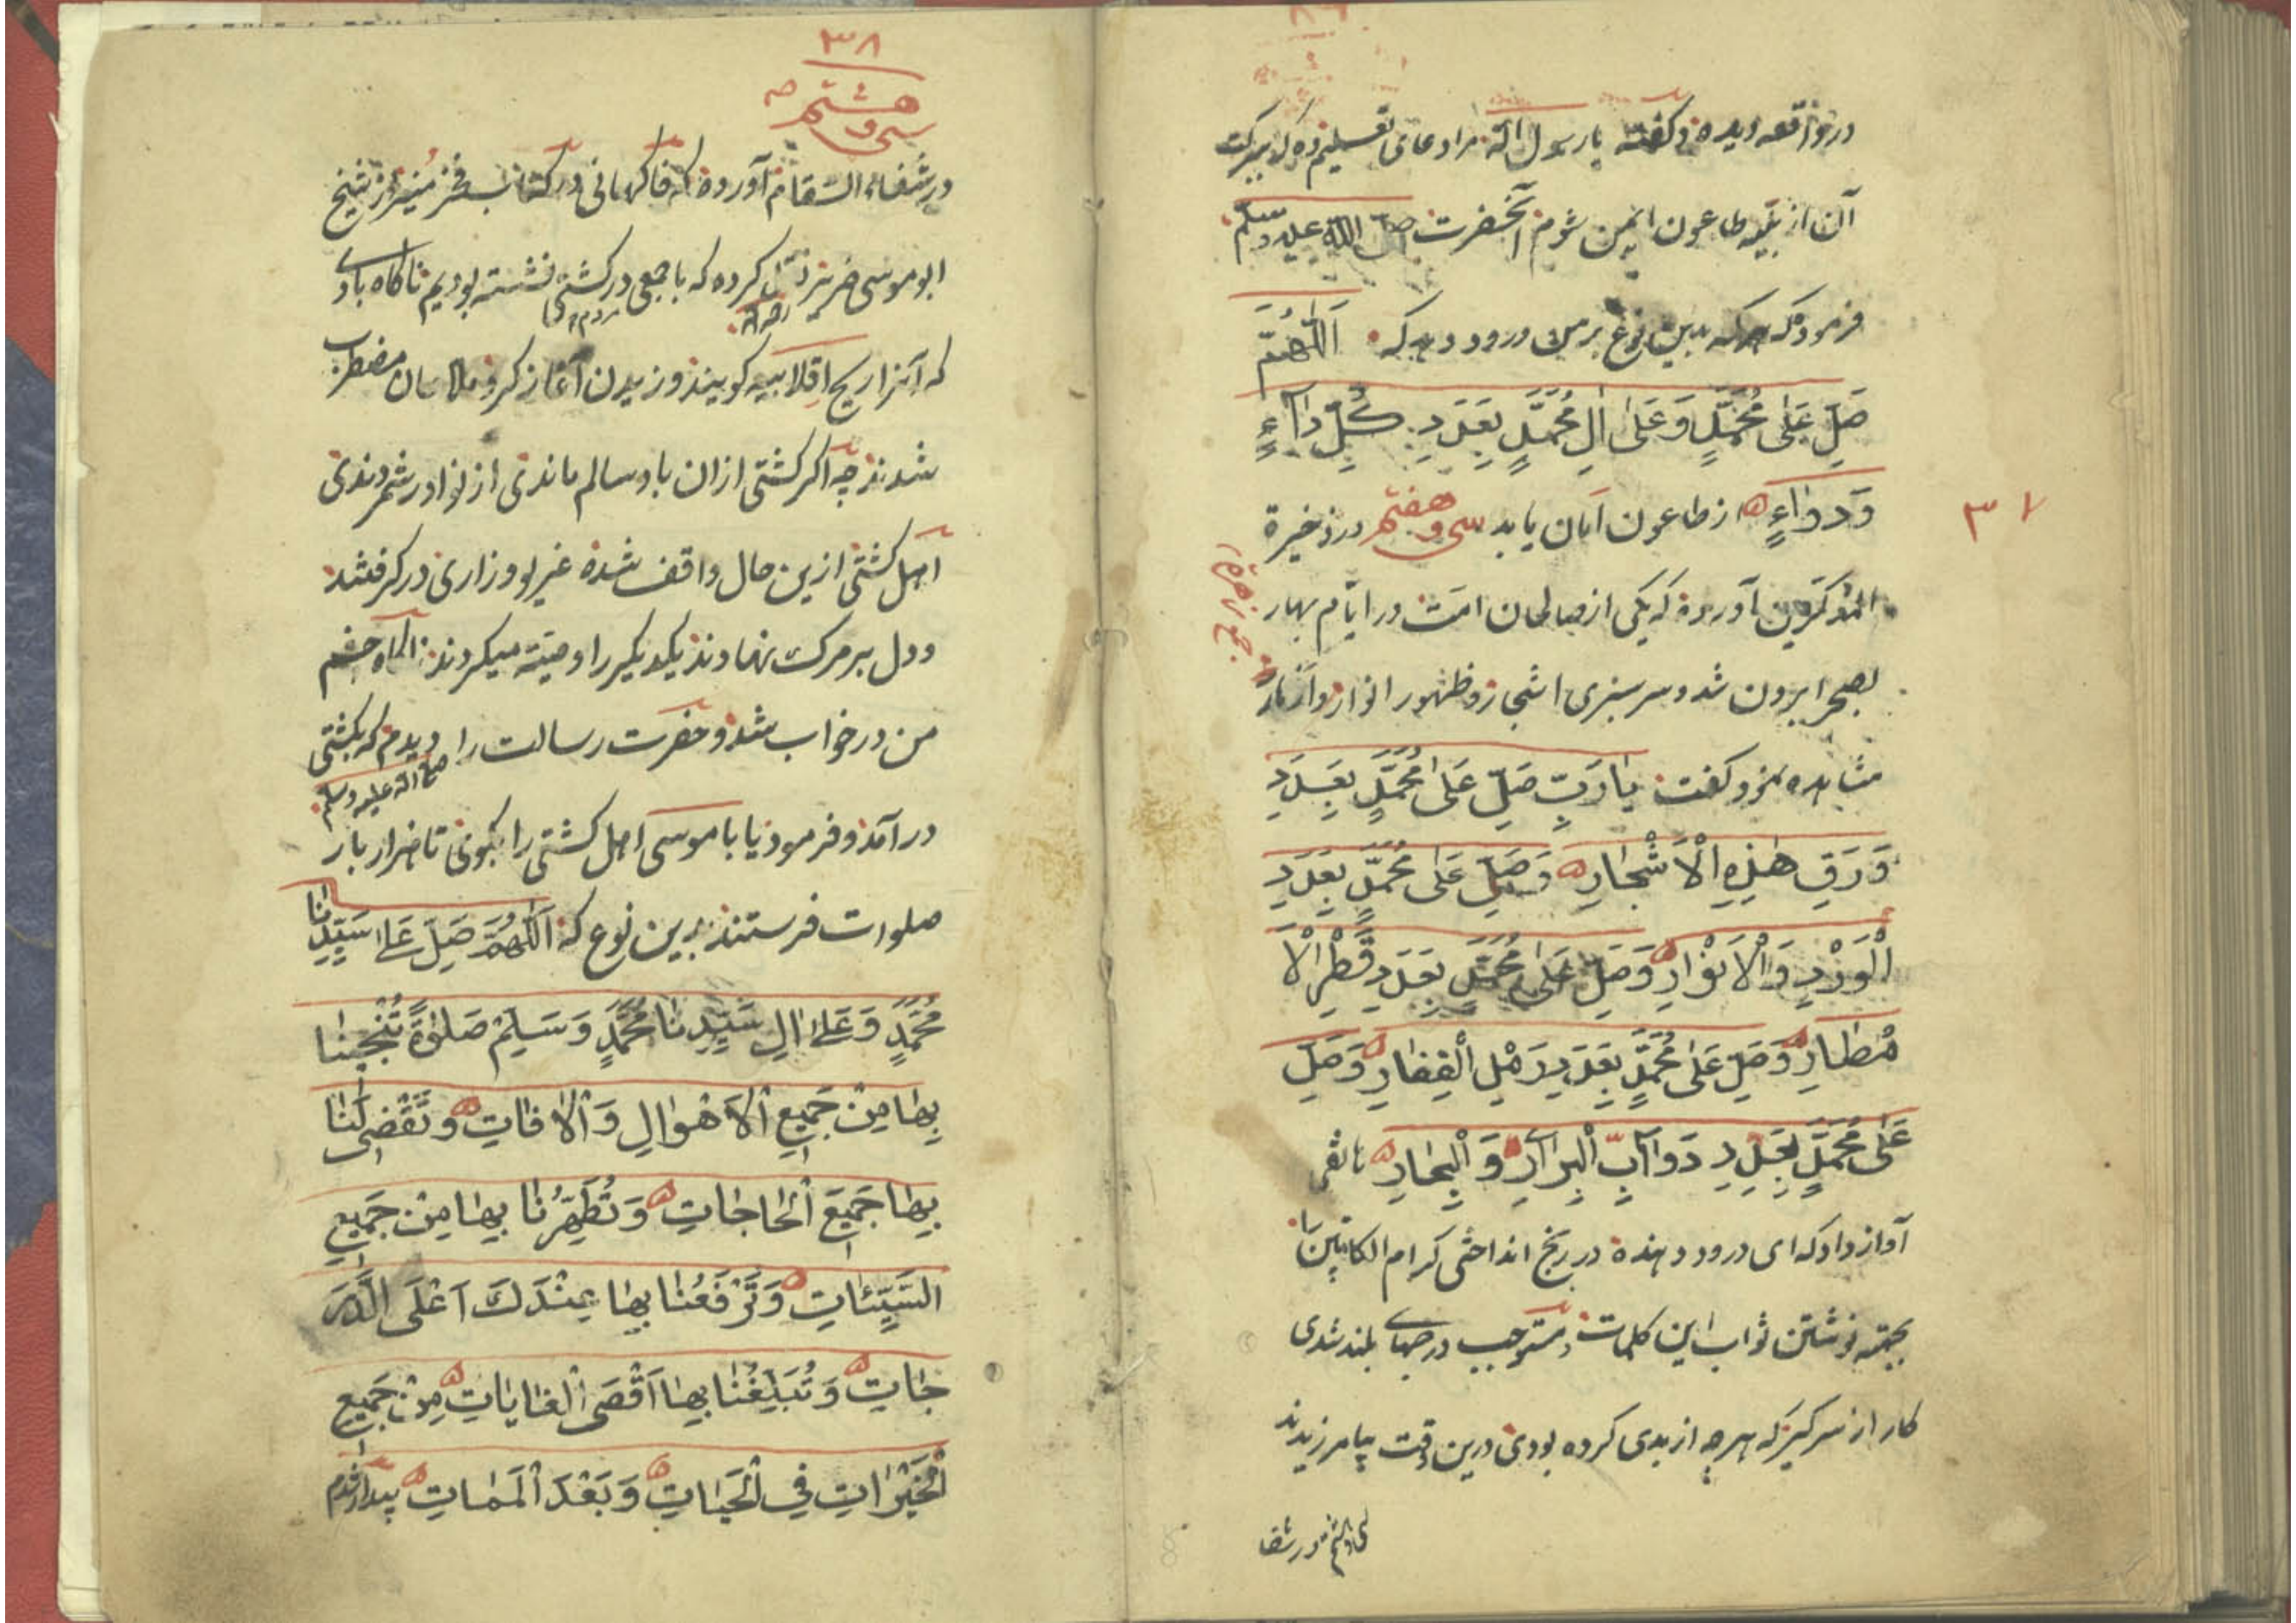 در واقعه دیده و کفته یا رسول الله مرا دعای تعلیم ده که ببرکت
آن از بلیه طاعون ایمن شوم آنحضرت صلى الله عليه وسلم
فرمود که هرکه بدین نوع بر من درود دهد که اَللّٰهُمَّ
صَلِّ عَلٰى مُحَمَّدٍ وَعَلٰى اٰلِ مُحَمَّدٍ بِعَدَدِ كُلِّ دَآءٍ
وَدَوَاءٍ از طاعون امان یابد سی و هفتم در ذخیرة
٣٧
المذکرین آورده که یکی از صالحان امت در ایام بهار
بصحرا بیرون شد و سرسبزی اشجار و ظهور انوار و ازهار
جمع زهرة
مشاهده نمود کفت یَا رَبِّ صَلِّ عَلٰى مُحَمَّدٍ بِعَدَدِ
وَرَقِ هٰذِهِ الْاَشْجَارِ وَصَلِّ عَلٰى مُحَمَّدٍ بِعَدَدِ
الْوَرْدِ وَالْاَنْوَارِ وَصَلِّ عَلٰى مُحَمَّدٍ بِعَدَدِ قَطْرِ الْاَ
مْطَارِ وَصَلِّ عَلٰى مُحَمَّدٍ بِعَدَدِ رَمْلِ الْقِفَارِ وَصَلِّ
عَلٰى مُحَمَّدٍ بِعَدَدِ دَوَآبِّ الْبِرَارِ وَالْبِحَارِ هاتفی
آواز داد که ای درود دهنده در رنج انداختی کرام الکاتبین را
بجهته نوشتن ثواب این کلمات و مستوجب درجهای بلند شدی
کار از سر کیر که هرچه از بدی کرده بودی درین وقت بیامرزیدند
سی و هشتم در شفا
٣٨
سی و هشتم
در شفاء السقام آورده که فاکهانی در کتاب فجر منیر از شیخ
ابو موسی ضریر نقل کرده که با جمعی در کشتی نشسته بودیم ناکاه بادی
رحمه الله
مردم
که آنرا ریح اقلابیه کویند وزیدن آغاز کرد و ملاحان مضطرب
شدند چه اکر کشتی ازان باد سالم ماندی از نوادر شمردندی
اهل کشتی ازین حال واقف شده غریو و زاری درکرفتند
و دل بر مرک نهادند یکدیکر را وصیته میکردند ناکاه چشم
من در خواب شد و حضرت رسالت را دیدم که بکشتی
صلى الله عليه وسلم
درآمد و فرمود یا با موسی اهل کشتی را بکوی تا هزار بار
صلوات فرستند بدین نوع که اَللّٰهُمَّ صَلِّ عَلٰى سَيِّدِنَا
مُحَمَّدٍ وَعَلٰى اٰلِ سَيِّدِنَا مُحَمَّدٍ وَسَلِّمْ صَلٰوةً تُنْجِينَا
بِهَا مِنْ جَمِيعِ الْاَهْوَالِ وَالْاٰفَاتِ وَتَقْضِى لَنَا
بِهَا جَمِيعَ الْحَاجَاتِ وَتُطَهِّرُنَا بِهَا مِنْ جَمِيعِ
السَّيِّئَاتِ وَتَرْفَعُنَا بِهَا عِنْدَكَ اَعْلَى الدَّرَ
جَاتِ وَتُبَلِّغُنَا بِهَا اَقْصَى الْغَايَاتِ مِنْ جَمِيعِ
الْخَيْرَاتِ فِي الْحَيَاتِ وَبَعْدَ الْمَمَاتِ بیدار شدم